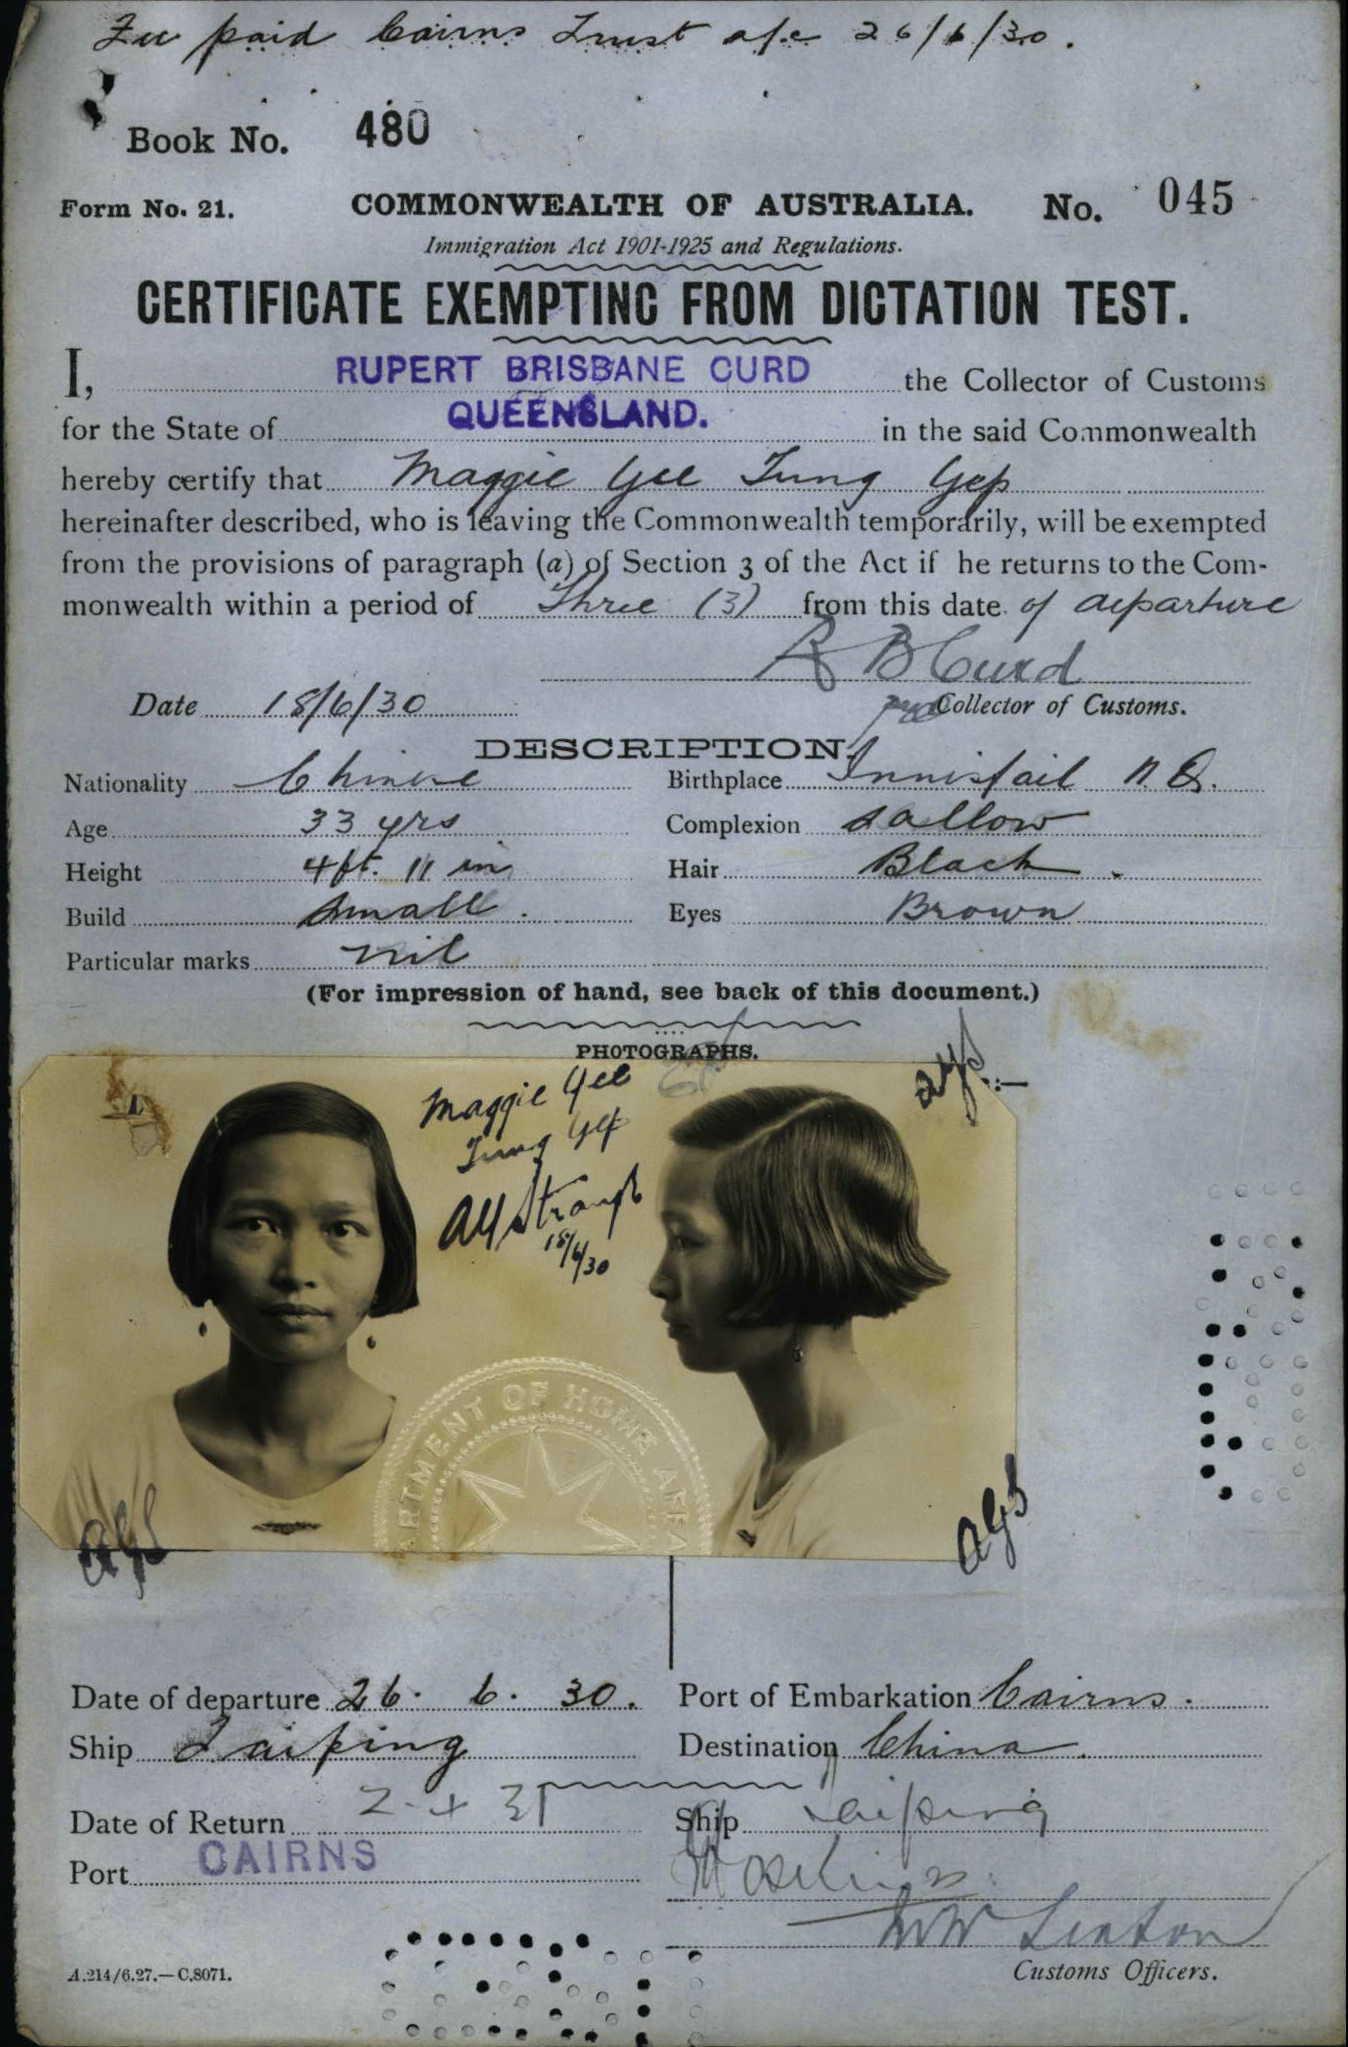 Fee paid Cairns Trust a/c 26/6/30.
Book No. 480
Form No. 21. COMMONWEALTH OF AUSTRALIA. No. 045
Immigration Act 1901-1925 and Regulations.
CERTIFICATE EXEMPTING FROM DICTATION TEST.
I, RUPERT BRISBANE CURD the Collector of Customs
for the State of QUEENSLAND. in the said Commonwealth
hereby certify that Maggie Yee Tung Yep
hereinafter described, who is leaving the Commonwealth temporarily, will be exempted
from the provisions of paragraph (a) of Section 3 of the Act if he returns to the Com-
monwealth within a period of Three (3) from this date of departure
R B Curd
Date 18/6/30 Collector of Customs.
DESCRIPTION.
Nationality Chinese Birthplace Innisfail N.Q.
Age 33 yrs Complexion sallow
Height 4 ft. 11 in Hair Black.
Build small. Eyes Brown
Particular marks nil
(For impression of hand, see back of this document.)
PHOTOGRAPHS.
Maggie Yee
Tung Yep
18/6/30
ARTMENT OF HOME AFFA
ags
ags
ags
Date of departure 26. 6. 30. Port of Embarkation Cairns.
Ship Taiping Destination China.
Date of Return 2 4 31 Ship Taiping
Port CAIRNS
Customs Officers.
A.214/6.27.—C.8071.